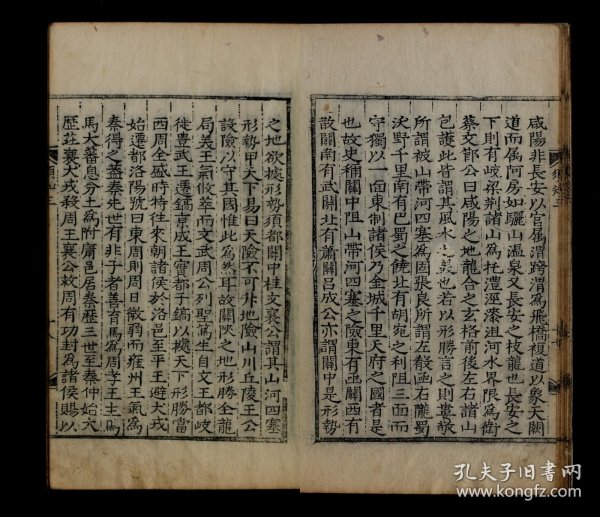 咸陽非長安以宫属渭跨渭爲飛橋複道以象天闕
道而属阿房如驪山溫泉又長安之枝龍也長安之
下則有岐梁荆諸山為托灃涇漆沮河水界限爲衛
蔡文節公曰咸陽之地龍合之玄格前後左右諸山
包護此皆謂其風水也若以形勝言之則婁敬
所謂被山帶河四塞爲固張良所謂左殽函右隴蜀
沃野千里南有巴蜀之饒北有胡宛之利阻三面而
守獨以一面東制諸侯乃金城千里天府之國者是
也故史稱關中阻山帶河四塞之險東有函關西有
散關南有武關北有蕭關呂成公亦謂關中是形勢
之地欲據形勢須都關中桂文襄公謂其山河四塞
形勢甲天下易曰天險不可升地險山川丘陵王公
設險以守其國惟此為然耳故關陝之地形勝全龍
局美王氣攸萃而文武周公列聖篤生自文王都岐
徙豐武王遷鎬京成王雖都于鎬以據天下形勝當
西周全盛時特往來朝諸侯於洛邑至平王避犬戎
始遷都洛陽號曰東周則周日微弱而雍州王氣爲
秦得之蓋秦先世有非子者善育馬爲周孝王主馬
馬大蕃息分土爲附庸邑居秦歷三世至秦仲始大
歷莊襄犬戎殺周王襄公救周有功封爲諸侯賜以
孔夫子旧书网
www.kongfz.com